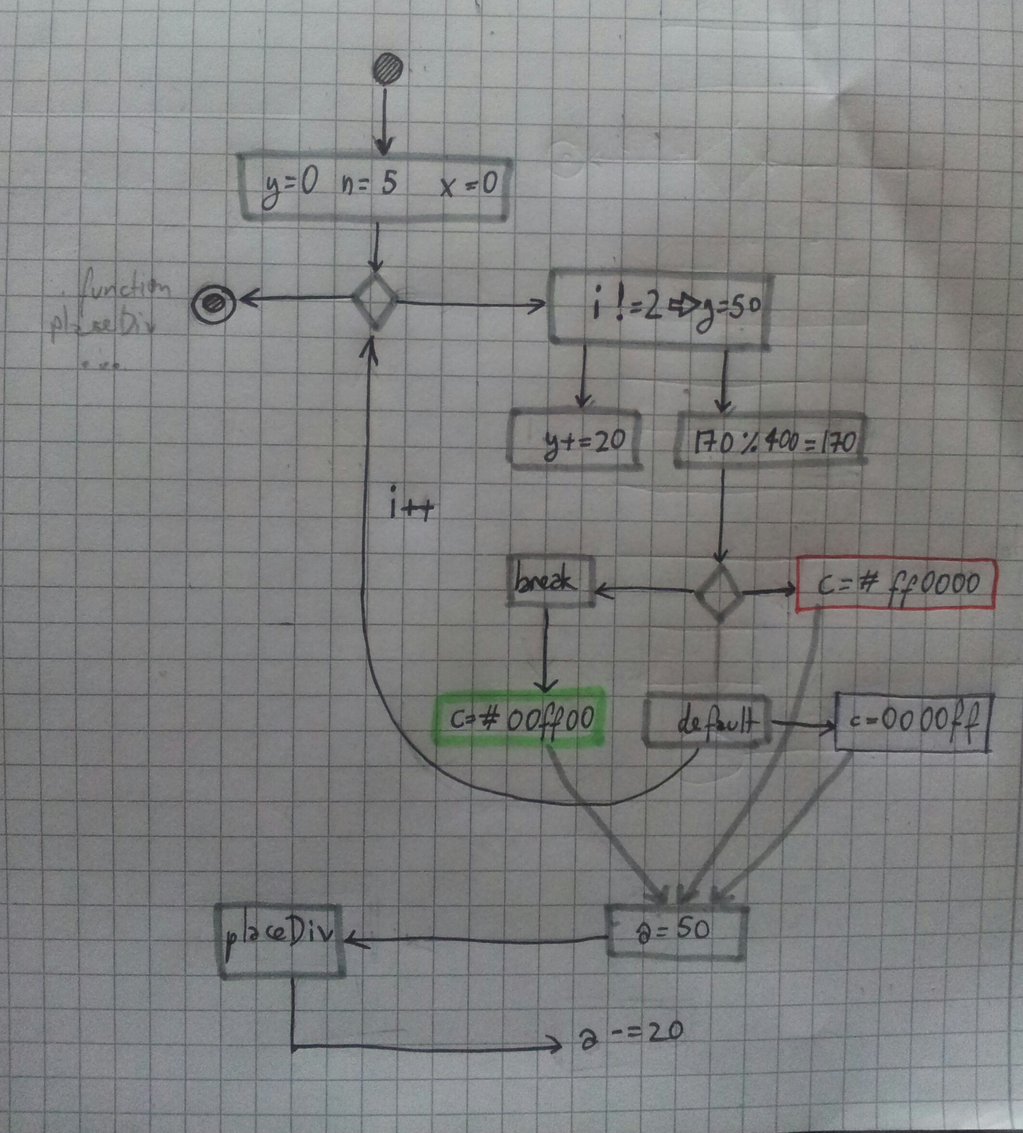 y=0 n=5 x=0
function
placeDiv
...
i!=2⇒y=50
y+=20
170%400=170
i++
break
c=#ff0000
c=#00ff00
default
c=0000ff
placeDiv
a=50
a-=20